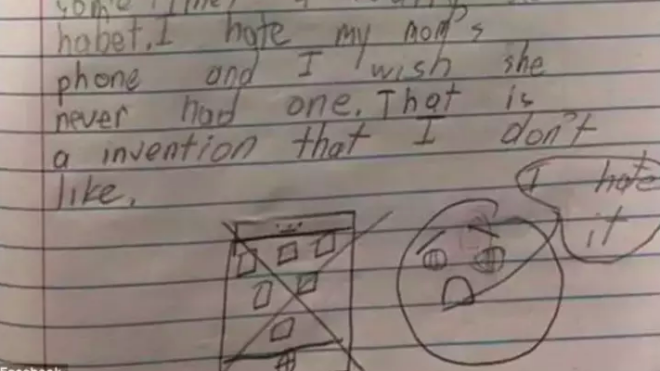 habet. I hate my mom's
phone and I wish she
never had one. That is
a invention that I don't
like.
I hate
it